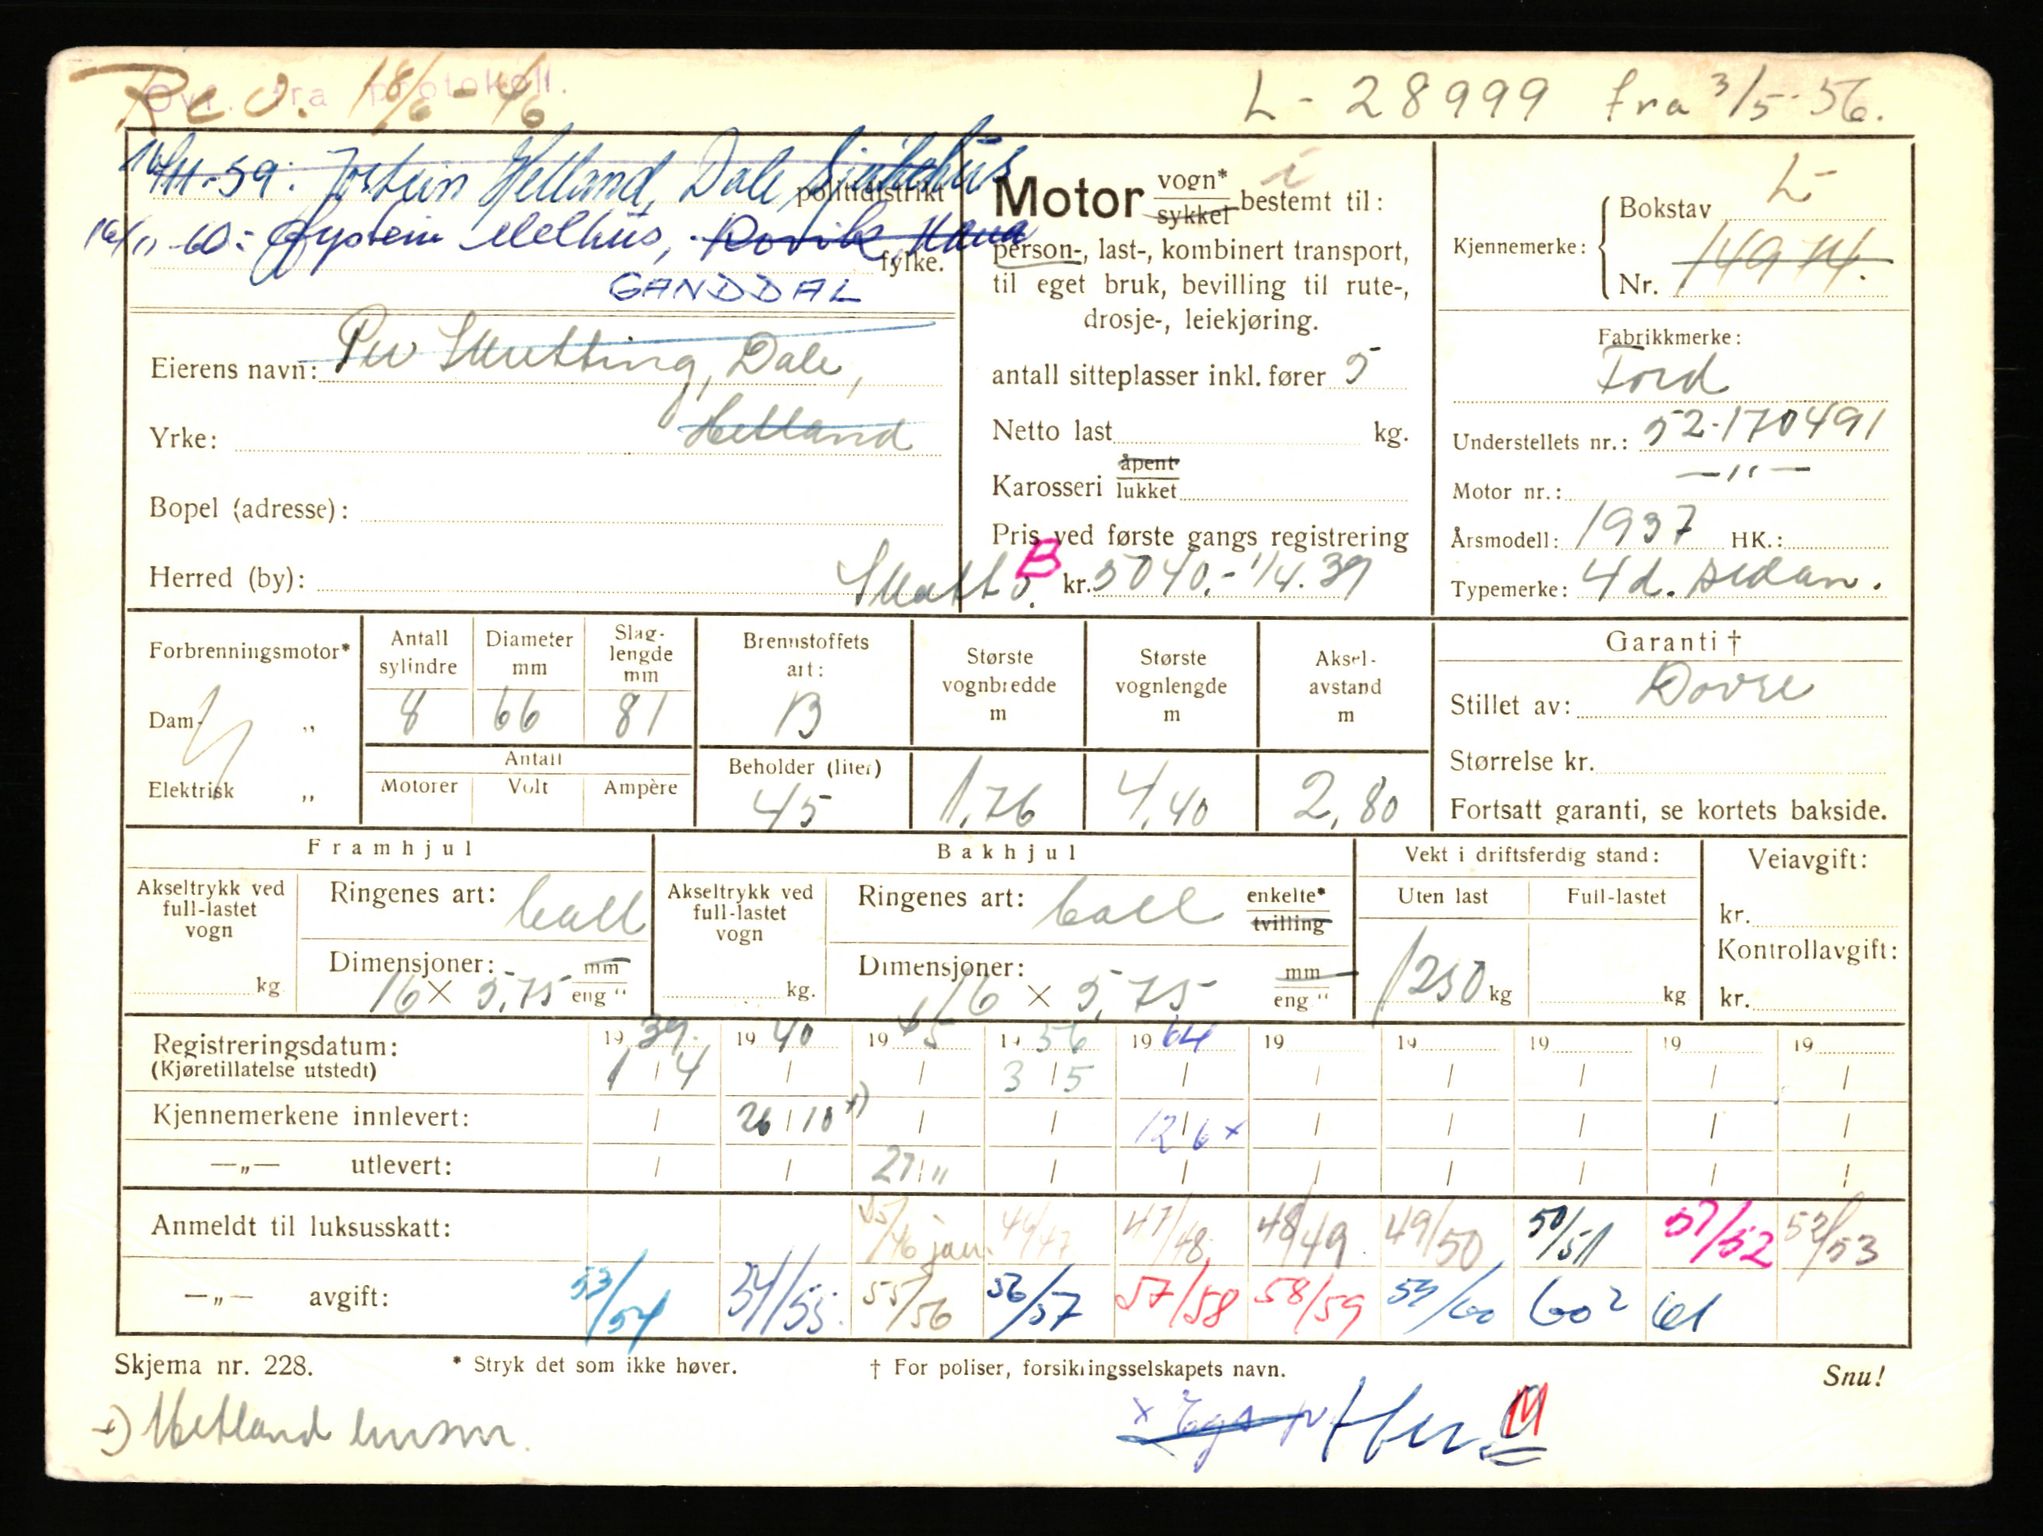 Ovf. fra protokoll.
Rev. 18/6-46
L-28999 fra 3/5-56.
16/11-59: Jostein Helland, Dale, Sjukehus
politidistrikt
16/11-60: Øystein Melhus, Rovik, Hana
fylke.
GANDDAL
Eierens navn: Per Skretting, Dale,
Yrke: Hetland
Bopel (adresse):
Herred (by):
Skattb. B
Motor vogn* sykkel bestemt til:
person-, last-, kombinert transport,
til eget bruk, bevilling til rute-,
drosje-, leiekjøring.
antall sitteplasser inkl. fører 5
Netto last kg.
Karosseri åpent lukket
Pris ved første gangs registrering
kr. 5040.- 1/4.39
Kjennemerke: Bokstav L-
Nr. 14914.
Fabrikkmerke:
Ford
Understellets nr.: 52-170491
Motor nr.: —"—
Årsmodell: 1937 HK.:
Typemerke: 4d. sedan.
Forbrenningsmotor*
Dam- „
Elektrisk „
Antall sylindre 8
Diameter mm 66
Slaglengde mm 81
Brennstoffets art: B
Antall
Motorer Volt Ampère
Beholder (liter) 45
Største vognbredde m 1,76
Største vognlengde m 4,40
Akselavstand m 2,80
Garanti †
Stillet av: Dovre
Størrelse kr.
Fortsatt garanti, se kortets bakside.
Framhjul
Akseltrykk ved full-lastet vogn kg.
Ringenes art: Ball
Dimensjoner: 16 × 5,75 mm eng "
Bakhjul
Akseltrykk ved full-lastet vogn kg.
Ringenes art: Ball enkelte* tvilling
Dimensjoner: 16 × 5,75 mm eng "
Vekt i driftsferdig stand:
Uten last 1250 kg
Full-lastet kg
Veiavgift:
kr.
Kontrollavgift:
kr.
Registreringsdatum: 1939. 1940 1945 1956 1964 19 19 19 19 19
(Kjøretillatelse utstedt) 1/4 / / 3/5 / / / / / /
Kjennemerkene innlevert: / 26/10 +) / / 12/6 x / / / / /
—„— utlevert: / / 27/11 / / / / / / /
Anmeldt til luksusskatt: 45/46 jan. 46/47 47/48 48/49. 49/50 50/51 51/52 52/53
—„— avgift: 53/54 54/55. 55/56 56/57 57/58 58/59 59/60 60² 61
Skjema nr. 228. * Stryk det som ikke høver. † For poliser, forsikringsselskapets navn. Snu!
+) Hetland lensm.
M